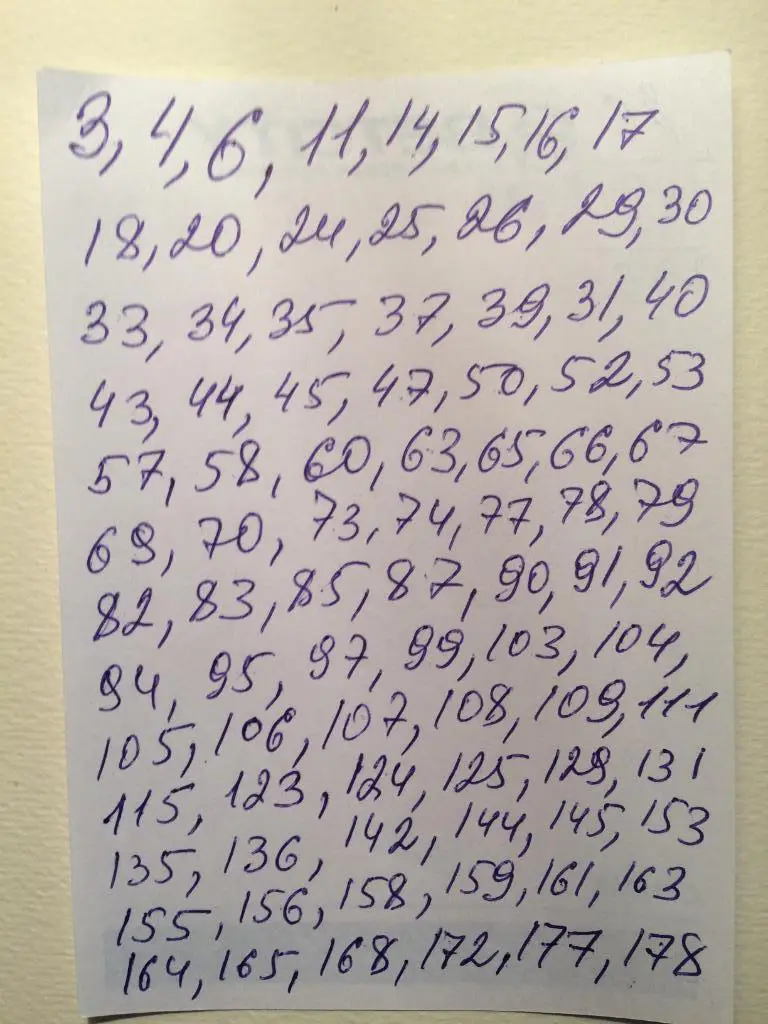 3, 4, 6, 11, 14, 15, 16, 17
18, 20, 24, 25, 26, 29, 30
33, 34, 35, 37, 39, 31, 40
43, 44, 45, 47, 50, 52, 53
57, 58, 60, 63, 65, 66, 67
69, 70, 73, 74, 77, 78, 79
82, 83, 85, 87, 90, 91, 92
94, 95, 97, 99, 103, 104,
105, 106, 107, 108, 109, 111
115, 123, 124, 125, 129, 131
135, 136, 142, 144, 145, 153
155, 156, 158, 159, 161, 163
164, 165, 168, 172, 177, 178